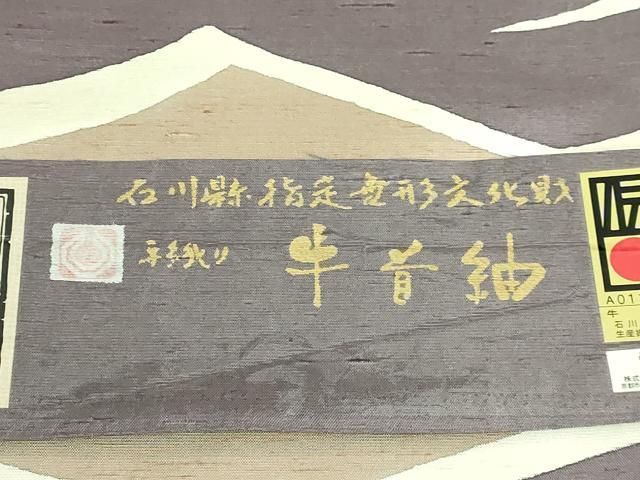 石川縣指定無形文化財
手織り
牛首紬
伝
A01
牛
石川
生産
株式
京都市